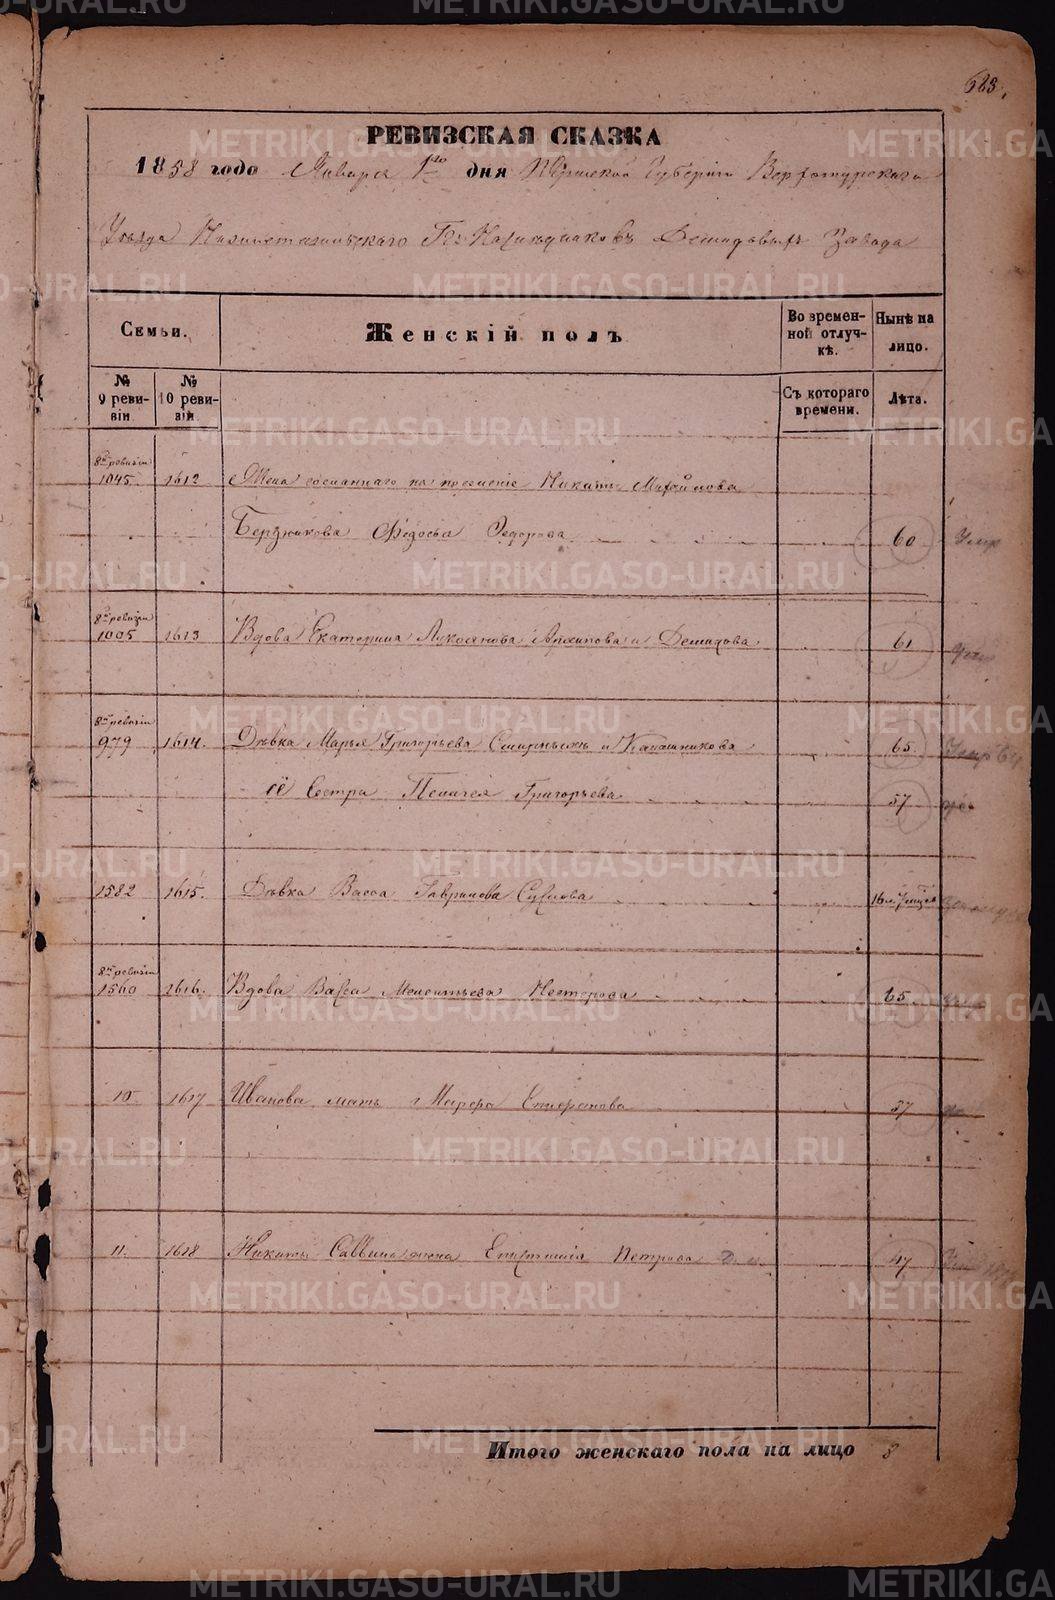 583.
РЕВИЗСКАЯ СКАЗКА
1858 года Января 1го дня Пермской Губернiи Верхотурскаго
Уѣзда Нижнетагильскаго Гг. Наслѣдниковъ Демидовыхъ Завода
Семьи.
Женскiй полъ
Во времен-
ной отлуч-
кѣ.
Нынѣ на
лицо.
№
9 реви-
зiи
№
10 реви-
зiи
Съ котораго
времени.
Лѣта.
8й ревизiи
1045. 1612 Жена сосланнаго на поселенiе Никиты Михайлова
Бердникова Федосья Федорова 60 Умр
8й ревизiи
1005 1613 Вдова Екатерина Лукоянова Архипова и Демидова 61
8й ревизiи
979 1614. Дѣвка Марья Григорьева Смирныхъ и Калашникова 65. Умр
её Сестра Пелагея Григорьева 57
1582 1615. Дѣвка Васса Гаврилова Суслова 16 л.
8й ревизiи
1560 1616. Вдова Васса Мелентьева Нестерова 65.
10 1617 Иванова мать Марфа Степанова 57
11. 1618 Никиты Саввина жена Епистимiя Петрова 47
Итого женскаго пола на лицо 8
METRIKI.GASO-URAL.RU